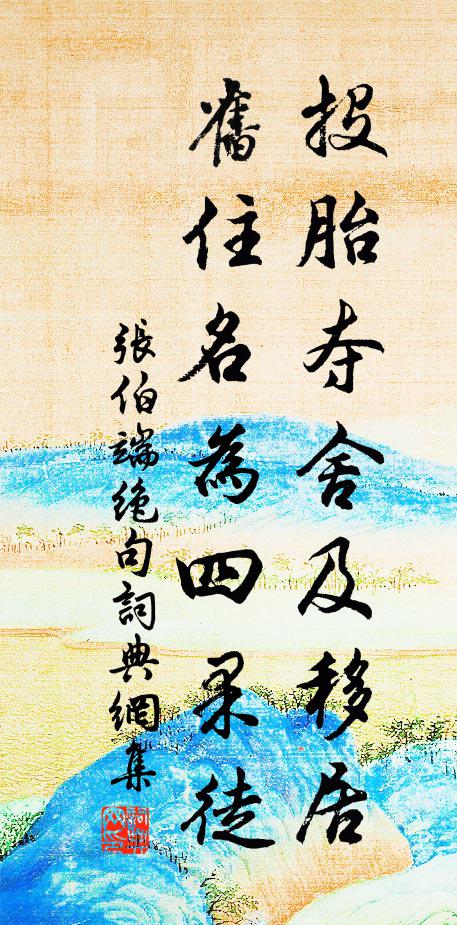 投胎夺舍及移居
舊住名為四果徒
張伯端絶句詞典網集